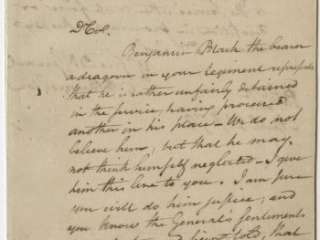 D Col.
Benjamin Black the bearer
a dragoon in your Regiment represents
that he is rather unfairly detained
in the service, having procured
another in his place - We do not
believe him, but that he may
not think himself neglected - I give
him this line to you. I am sure
you will do him justice; and
you know the General's sentiments
being told, that